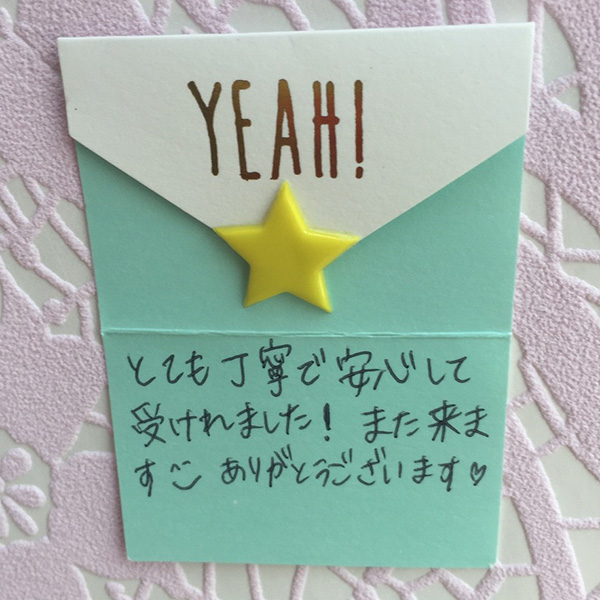 YEAH!
とても丁寧で安心して
受けれました！ また来ま
す ありがとうございます♡